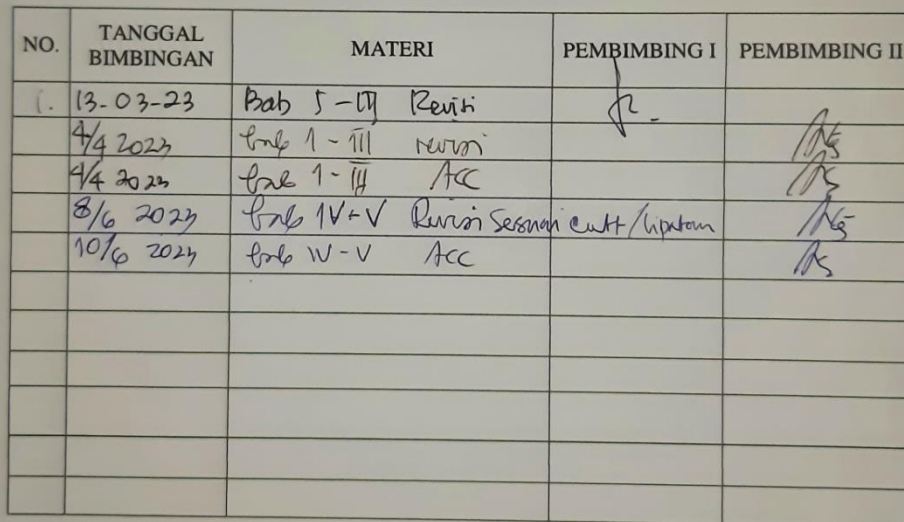 NO. TANGGAL BIMBINGAN MATERI PEMBIMBING I PEMBIMBING II
1. 13-03-23 Bab I-III Revisi
4/4 2023 bab 1-III revisi
4/4 2023 bab 1-III ACC
8/6 2023 bab IV-V Revisi Sesuai
10/6 2023 bab IV-V ACC